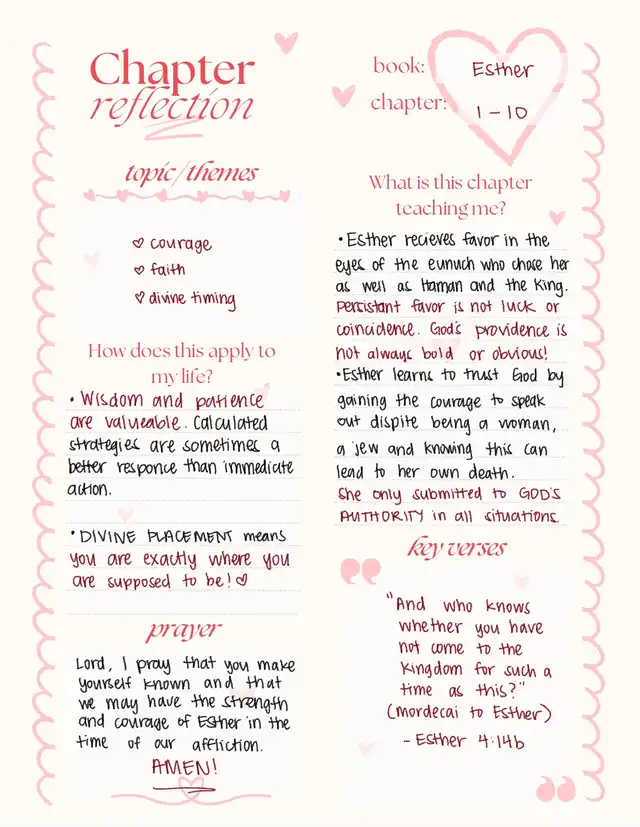 Chapter
reflection
book: Esther
chapter: 1-10
topic/themes
courage
faith
divine timing
How does this apply to
my life?
• Wisdom and patience
are valueable. Calculated
strategies are sometimes a
better responce than immediate
action.
• DIVINE PLACEMENT means
you are exactly where you
are supposed to be!
prayer
Lord, I pray that you make
yourself known and that
we may have the strength
and courage of Esther in the
time of our affliction.
AMEN!
What is this chapter
teaching me?
• Esther recieves favor in the
eyes of the eunuch who chose her
as well as Haman and the King.
Persistant favor is not luck or
coincidence. God's providence is
not always bold or obvious!
• Esther learns to trust God by
gaining the courage to speak
out dispite being a woman,
a jew and knowing this can
lead to her own death.
She only submitted to GOD'S
AUTHORITY in all situations.
key verses
"And who knows
whether you have
not come to the
kingdom for such a
time as this?"
(mordecai to Esther)
- Esther 4:14b